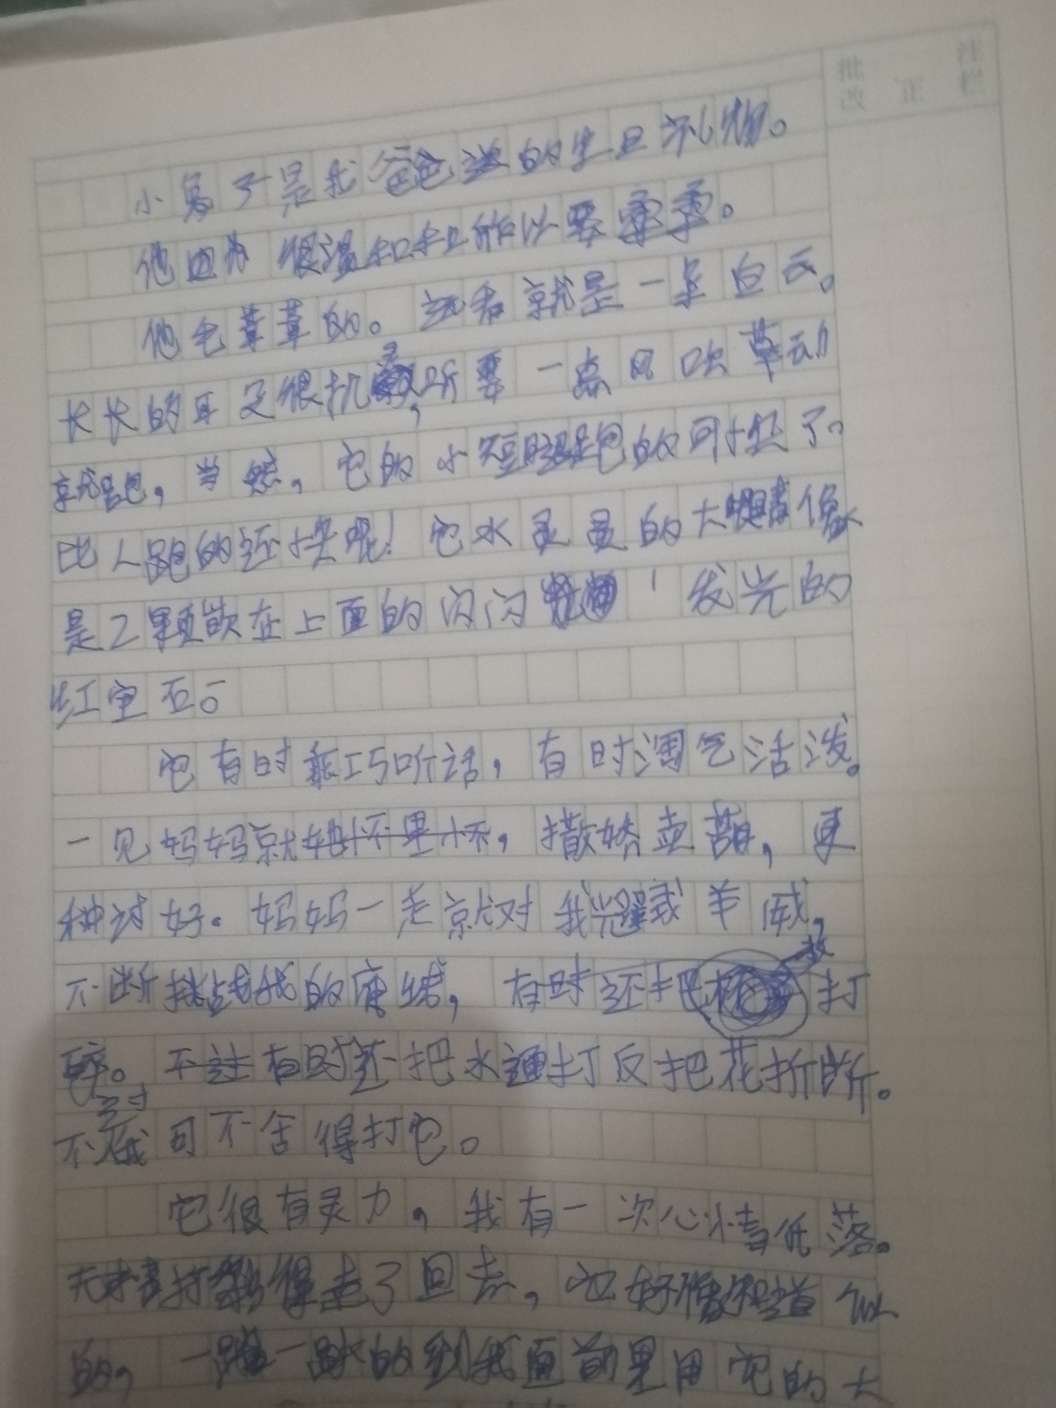 批改 正 注栏
小兔子是我爸爸送的生日礼物。
他因为很温和和所以要乖乖。
他毛茸茸的。远看就是一朵白云。
长长的耳又很机灵,听要一点风吹草动
就跑,当然,它的小短腿跑的可快了。
比人跑的还快呢!它水灵灵的大眼睛像
是2颗嵌在上面的闪闪发光的
红宝石。
它有时乖巧听话,有时淘气活泼。
一见妈妈就 怀里怀,撒娇卖萌,更
种讨好。妈妈一走就对我 羊威,
不断挑战我的底线,有时还把 打
碎。不过有时还把水 打反把花折断。
不过我可不舍得打它。
它很有灵力,我有一次心情低落。
走了回去,它好像知道似
的,一蹦一跳的到我面前里用它的大